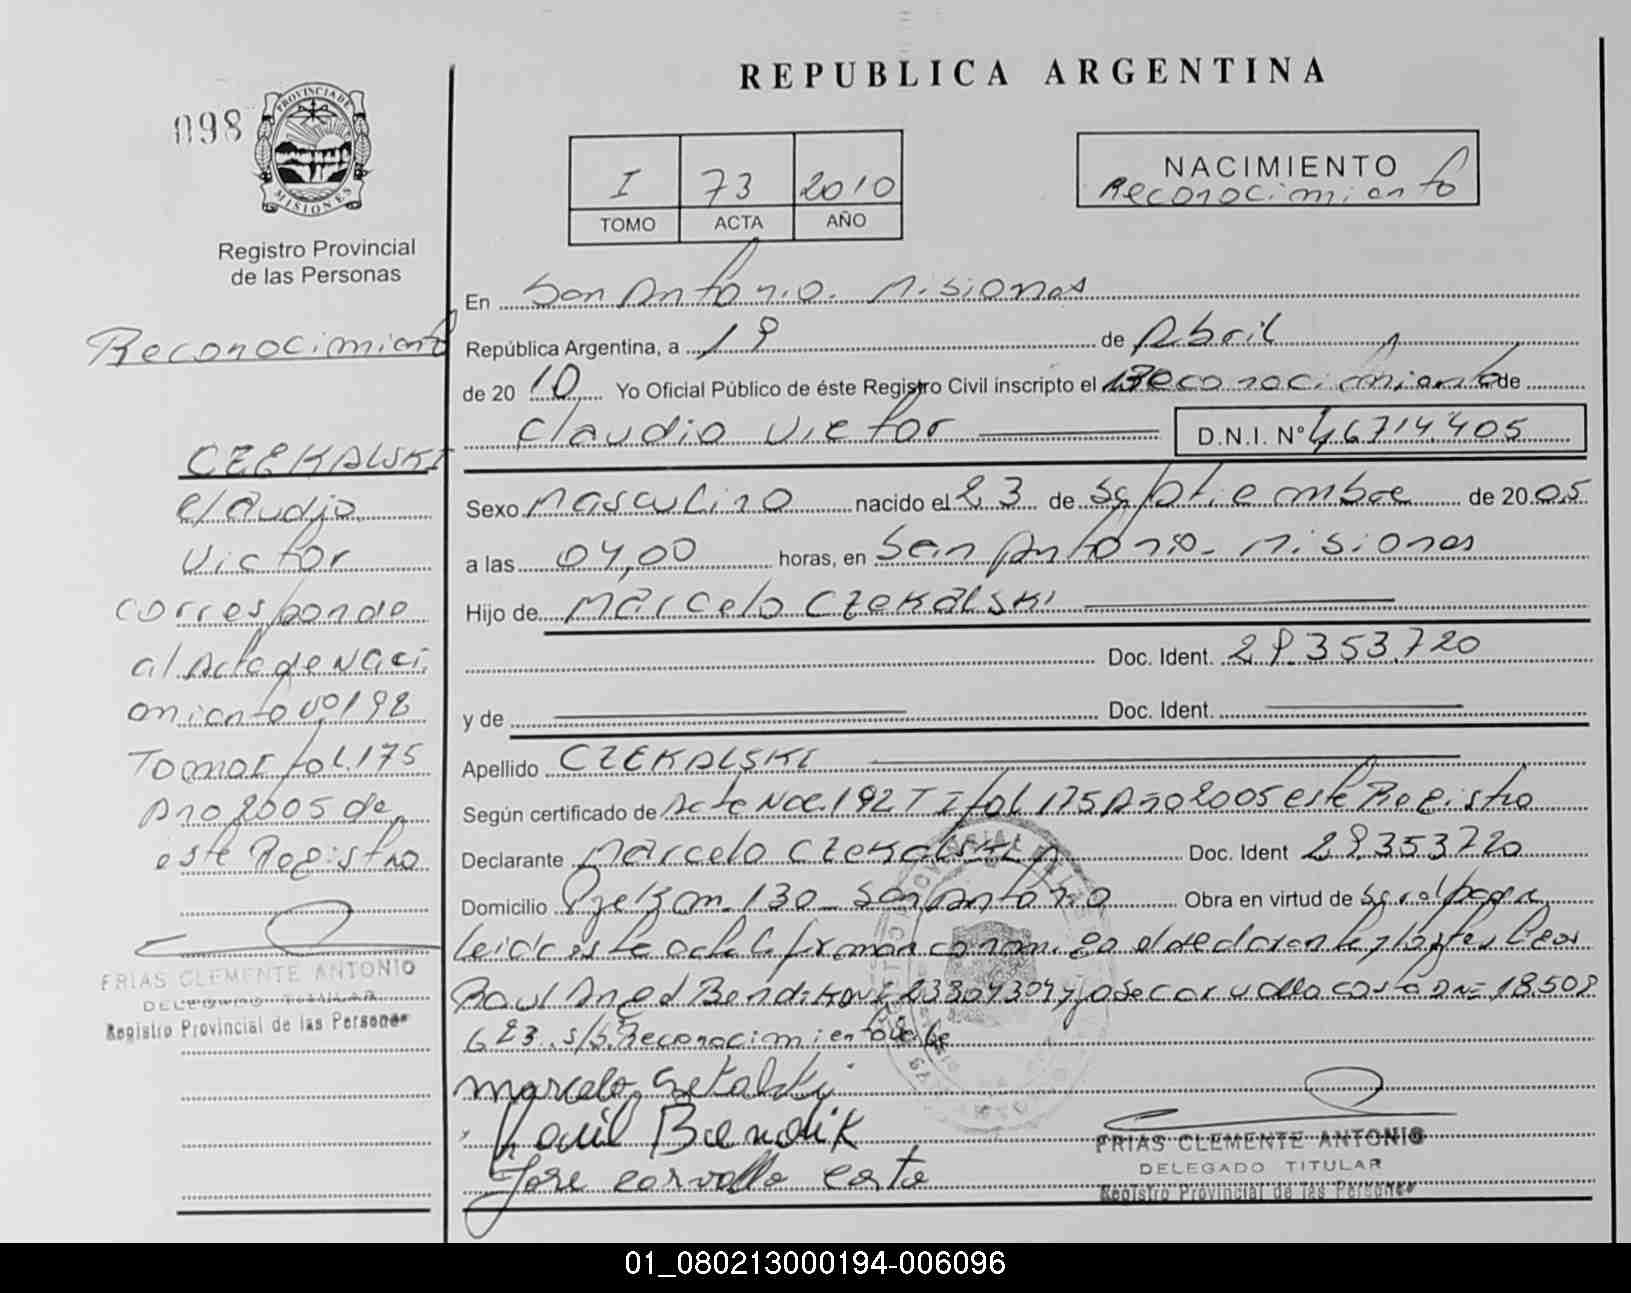 REPUBLICA ARGENTINA
098
PROVINCIA DE
MISIONES
Registro Provincial
de las Personas
I 73 2010
TOMO ACTA AÑO
NACIMIENTO
Reconocimiento
Reconocimiento
CZEKALSKI
Claudio
Victor
corresponde
al Acta de Naci
miento Nº 198
Tomo I fol. 175
Año 2005 de
este Registro
FRIAS CLEMENTE ANTONIO
DELEGADO TITULAR
Registro Provincial de las Personas
En San Antonio. Misiones
República Argentina, a 19 de Abril
de 20 10 Yo Oficial Público de éste Registro Civil inscripto el Reconocimiento de
Claudio Victor D.N.I. Nº 46714.405
Sexo Masculino nacido el 23 de Septiembre de 20 05
a las 04,00 horas, en San Antonio - Misiones
Hijo de Marcelo CZEKALSKI
Doc. Ident. 29.353.720
y de Doc. Ident.
Apellido CZEKALSKI
Según certificado de Acta Nac. 192 T I fol 175 Año 2005 este Registro
Declarante Marcelo Czekalski Doc. Ident 29.353720
Domicilio Pje Km. 130 - San Antonio Obra en virtud de
leida este acta la firman conmigo el declarante y los
Raul Angel Bendik 23304304 y Jose Carvallo Costa DNI 18.508
623. s/b. Reconocimiento
Marcelo
Raúl Bendik
Jose Carvallo Costa
FRIAS CLEMENTE ANTONIO
DELEGADO TITULAR
Registro Provincial de las Personas
01_080213000194-006096